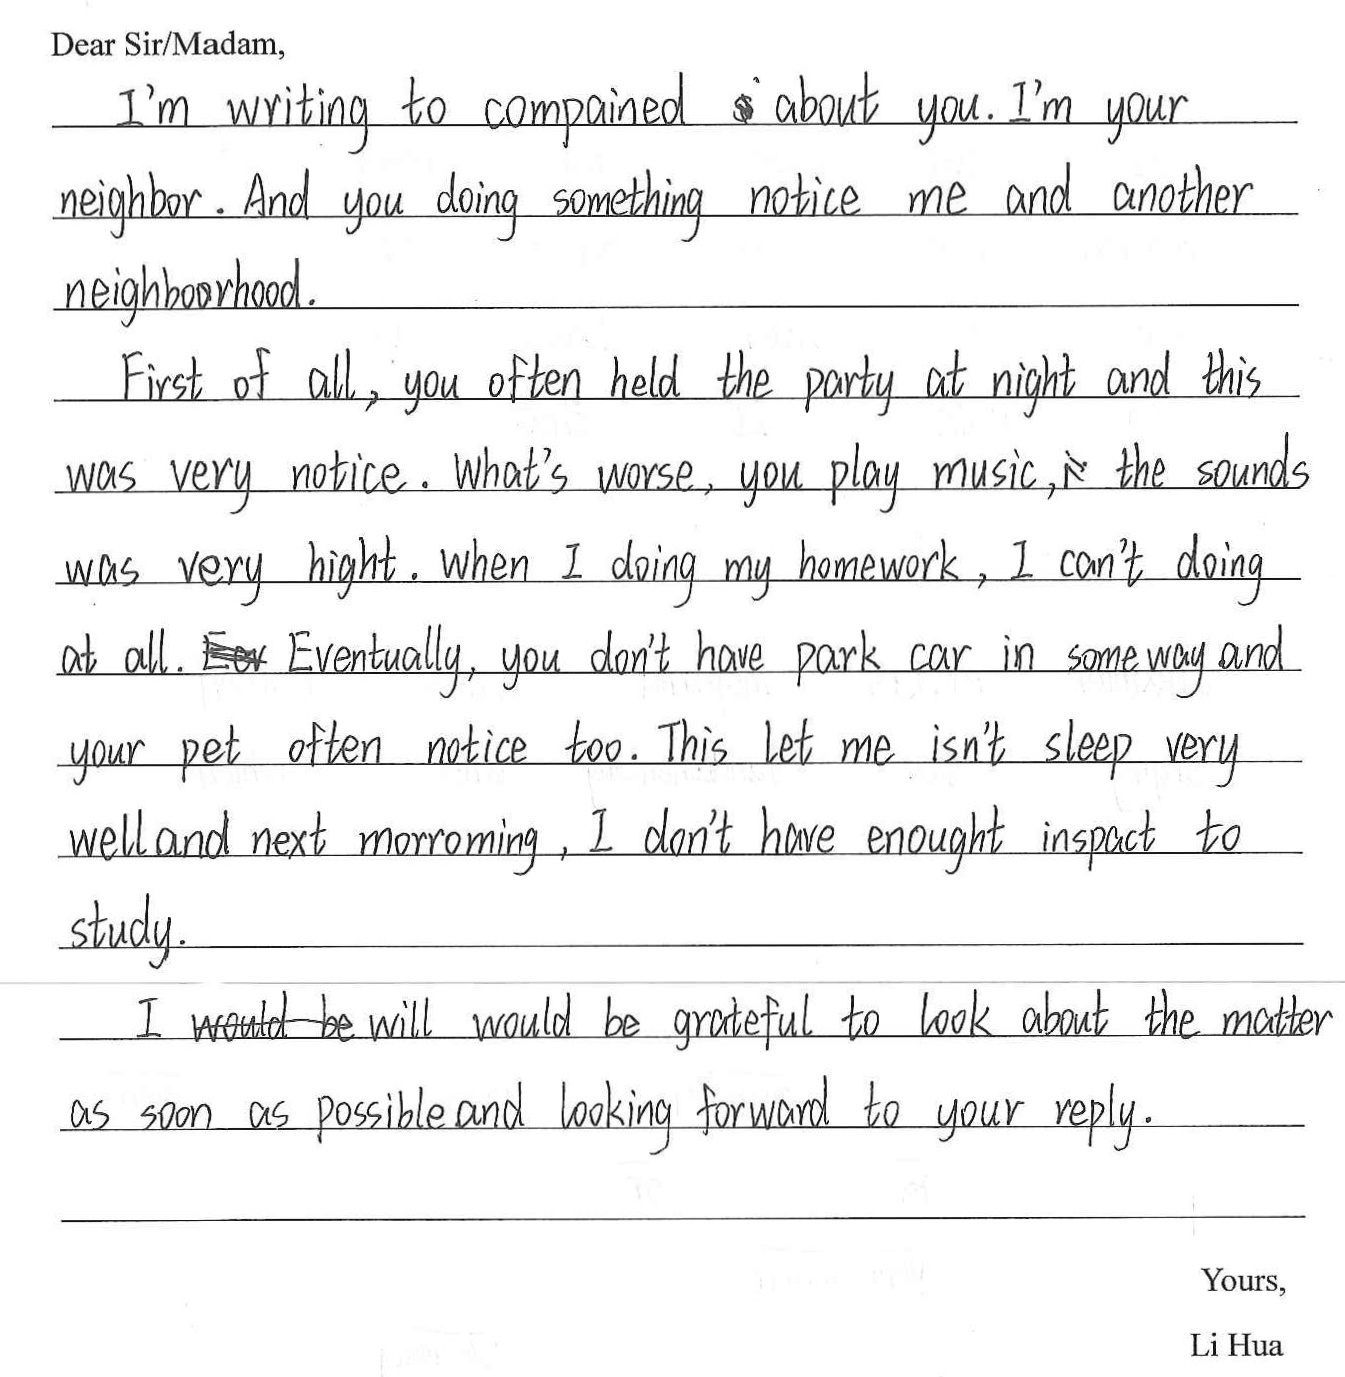 Dear Sir/Madam,
I'm writing to compained about you. I'm your
neighbor. And you doing something notice me and another
neighboorhood.
First of all, you often held the party at night and this
was very notice. What's worse, you play music, the sounds
was very hight. When I doing my homework, I can't doing
at all. Eventually, you don't have park car in some way and
your pet often notice too. This let me isn't sleep very
well and next morroming, I don't have enought inspact to
study.
I would be will would be grateful to look about the matter
as soon as possible and looking forward to your reply.
Yours,
Li Hua